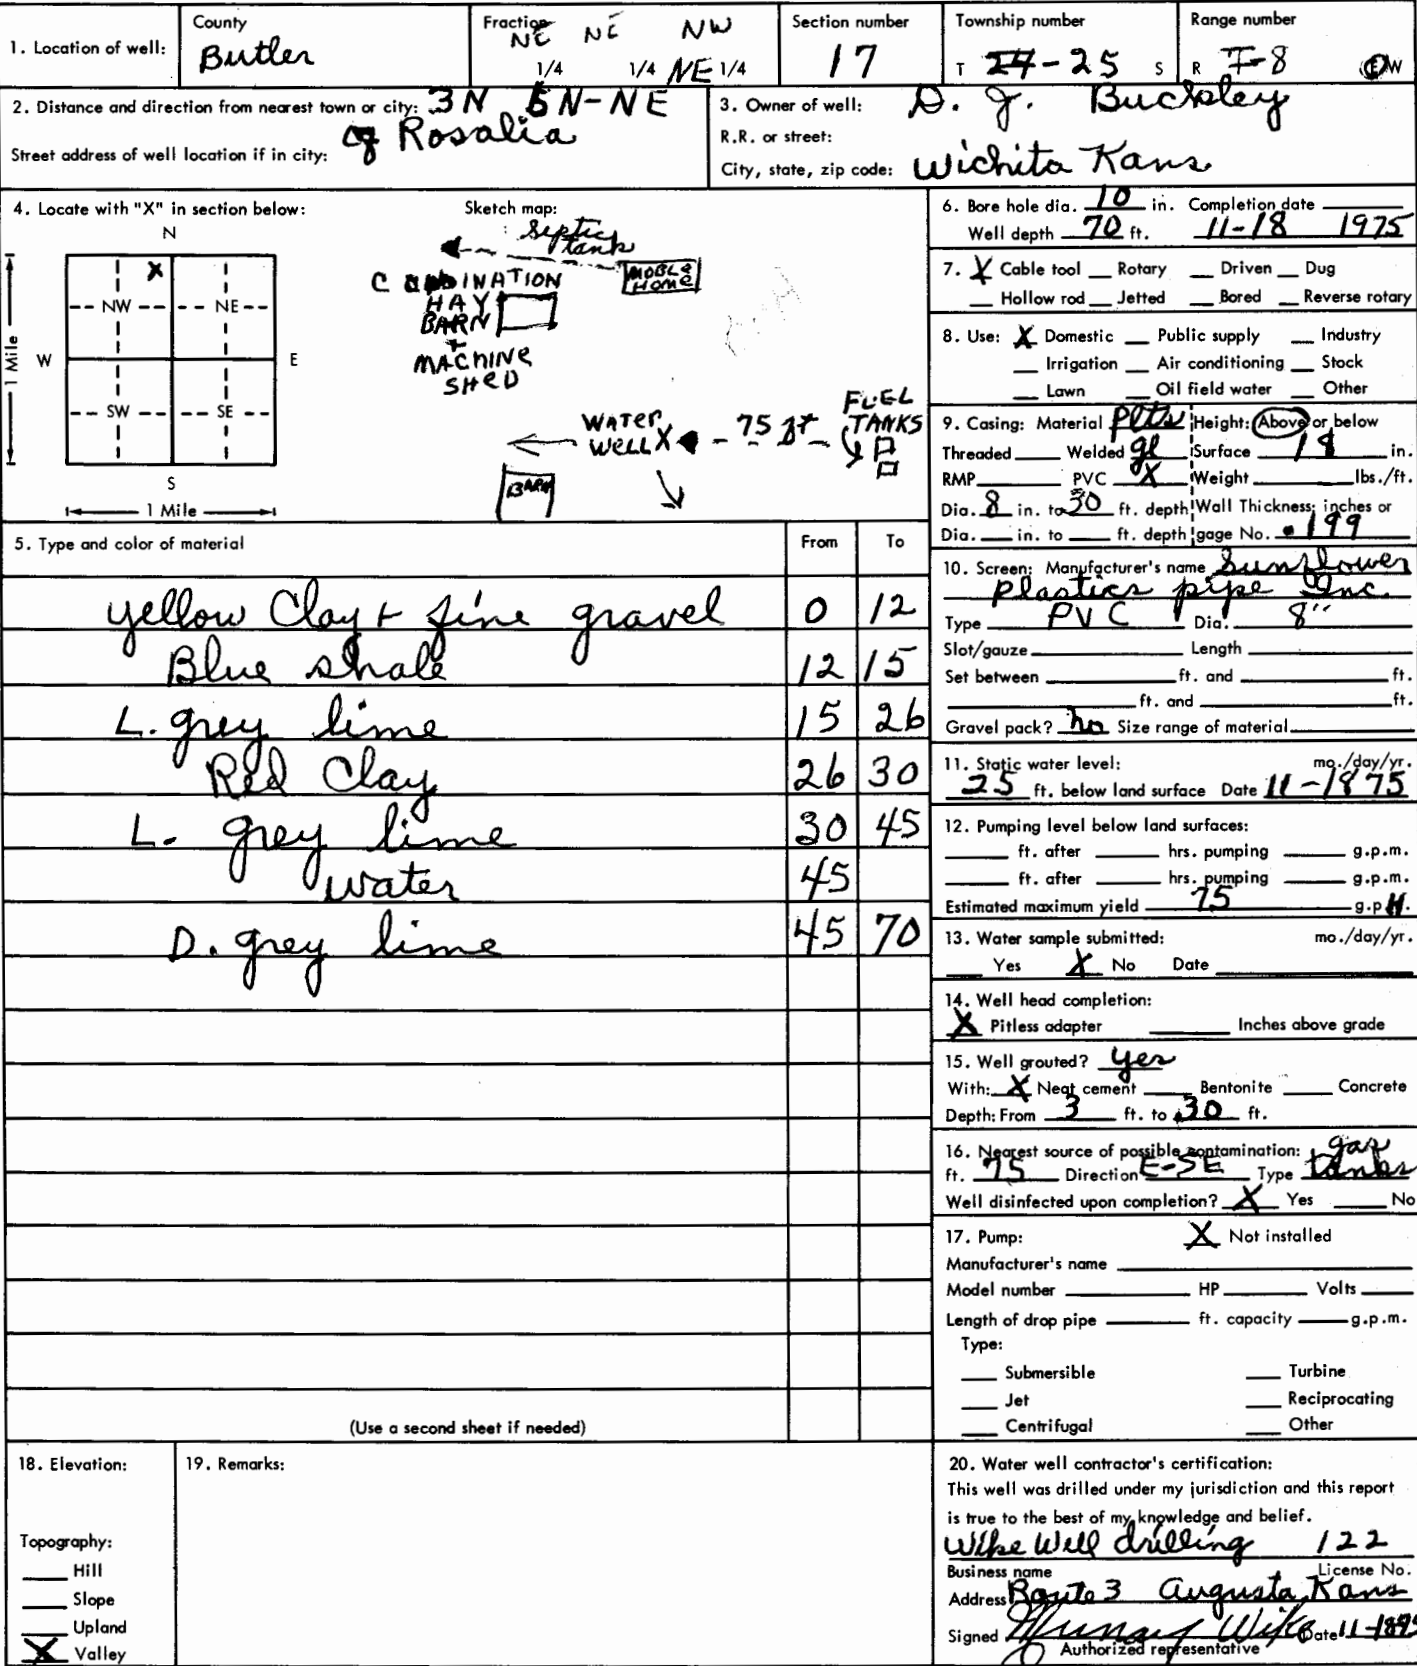 1. Location of well: County Butler Fraction NE NE NW 1/4 1/4 NE 1/4 Section number 17 Township number T 24-25 S Range number R 7-8 E W
2. Distance and direction from nearest town or city: 3N 5N-NE
of Rosalia
Street address of well location if in city:
3. Owner of well: D. J. Buckley
R.R. or street:
City, state, zip code: Wichita Kans
4. Locate with "X" in section below:
N
X
NW NE
W E
SW SE
S
1 Mile
1 Mile
Sketch map:
Septic
tank
MOBLE
HOME
COMBINATION
HAY
BARN
+
MACHINE
SHED
WATER
WELL X
75 ft
FUEL
TANKS
BARN
5. Type and color of material From To
yellow Clay + fine gravel 0 12
Blue shale 12 15
L. grey lime 15 26
Red Clay 26 30
L. grey lime 30 45
water 45
D. grey lime 45 70
(Use a second sheet if needed)
6. Bore hole dia. 10 in. Completion date
Well depth 70 ft. 11-18 1975
7. X Cable tool Rotary Driven Dug
Hollow rod Jetted Bored Reverse rotary
8. Use: X Domestic Public supply Industry
Irrigation Air conditioning Stock
Lawn Oil field water Other
9. Casing: Material Height: Above or below
Threaded Welded gl Surface 18 in.
RMP PVC X Weight lbs./ft.
Dia. 8 in. to 30 ft. depth Wall Thickness: inches or
Dia. in. to ft. depth gage No. .199
10. Screen: Manufacturer's name Sunflower
Plastics pipe Inc.
Type PVC Dia. 8"
Slot/gauze Length
Set between ft. and ft.
ft. and ft.
Gravel pack? no Size range of material
11. Static water level: mo./day/yr.
25 ft. below land surface Date 11-18 75
12. Pumping level below land surfaces:
ft. after hrs. pumping g.p.m.
ft. after hrs. pumping g.p.m.
Estimated maximum yield 75 g.p.H.
13. Water sample submitted: mo./day/yr.
Yes X No Date
14. Well head completion:
X Pitless adapter Inches above grade
15. Well grouted? yes
With: X Neat cement Bentonite Concrete
Depth: From 3 ft. to 30 ft.
16. Nearest source of possible contamination: gas
ft. 75 Direction E-SE Type tanks
Well disinfected upon completion? X Yes No
17. Pump: X Not installed
Manufacturer's name
Model number HP Volts
Length of drop pipe ft. capacity g.p.m.
Type:
Submersible Turbine
Jet Reciprocating
Centrifugal Other
18. Elevation:
Topography:
Hill
Slope
Upland
X Valley
19. Remarks:
20. Water well contractor's certification:
This well was drilled under my jurisdiction and this report
is true to the best of my knowledge and belief.
Wike Well drilling 122
Business name License No.
Address Route 3 Augusta, Kans
Signed Murray Wike Date 11-1875
Authorized representative